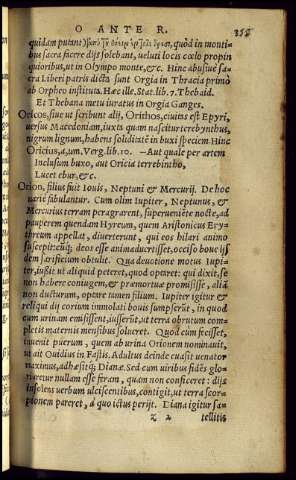 O ANTE R.
quidam putant
quòd in monti-
bus sacra facere dijs solebant, ueluti locis cœlo propin
quioribus, ut in Olympo monte, &c. Hinc abusiue sa-
cra Liberi patris dicta sunt Orgia in Thracia primò
ab Orpheo instituta. Hæc ille. Stat. lib. 7. Thebaid.
Et Thebana metu iuratus in Orgia Ganges.
Oricos, siue ut scribunt alij, Orithos, ciuitas est Epyri,
uersus Macedoniam, iuxta quam nascitur terebynthus,
nigrum lignum, habens soliditatem buxi speciem. Hinc
Oricius, a, um. Verg. lib. 10. — Aut quale per artem
Inclusum buxo, aut Oricia terebintho,
Lucet ebur, &c.
Orion, filius fuit Iouis, Neptuni & Mercurij. De hoc
uariè fabulantur. Cum olim Iupiter, Neptunus, &
Mercurius terram peragrarent, superueniẽte nocte, ad
pauperem quendam Hyreum, quem Aristonicus Ery-
threum appellat, diuerterunt, qui eos hilari animo
suscepit: cũq; deos esse animaduertisset, occiso boue ijs
dem sacrificium obtulit. Qua deuotione motus Iupi-
ter, iussit ut aliquid peteret, quod optaret: qui dixit, se
non habere coniugem, & præmortuæ promisisse, aliã
non ducturum, optare tamen filium. Iupiter igitur &
reliqui dij corium immolati bouis sumpserũt, in quod
cum urinam emisissent, iusserũt, ut terra obrutum com-
pletis maternis mensibus solueret. Quod cum fecisset,
inuenit puerum, quem ab urina Orionem nominauit,
ut ait Ouidius in Fastis. Adultus deinde euasit uenator
maximus, adhæsitq; Dianæ. Sed cum uiribus fidẽs glo-
riaretur nullam esse feram, quam non conficeret: dijs
insolens uerbum ulciscentibus, contigit, ut terra scor-
pionem pareret, a quo ictus perijt. Diana igitur sa-
z 2 tellitis